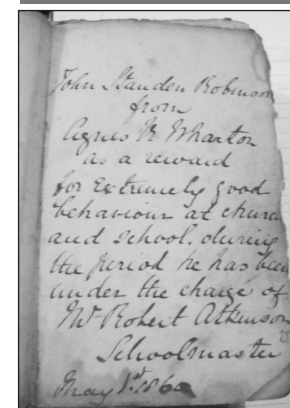 John Standen Robinson
from
Agnes B Wharton
as a reward
for Extremely good
behaviour at church
and School, during
the period he has been
under the charge of
Mr Robert Atkinson
Schoolmaster
May 1st 1860